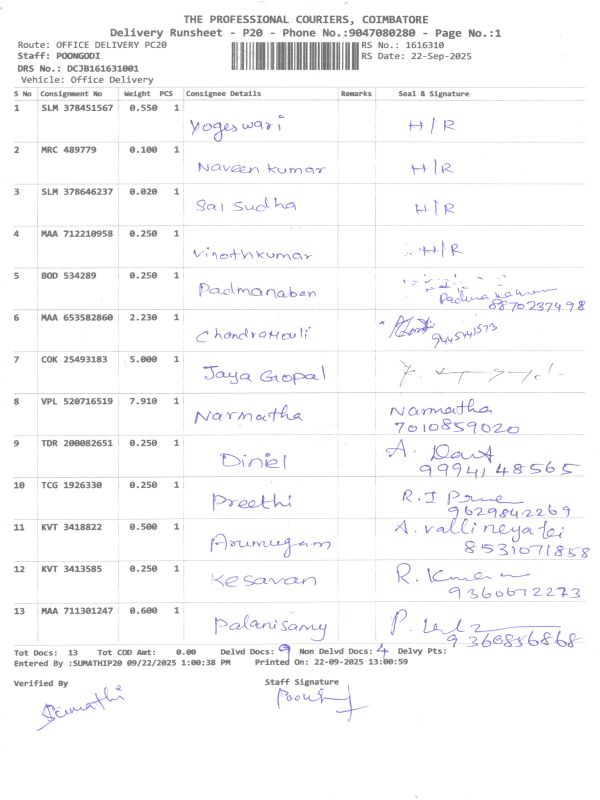 THE PROFESSIONAL COURIERS, COIMBATORE
Delivery Runsheet - P20 - Phone No.:9047080280 - Page No.:1
Route: OFFICE DELIVERY PC20 RS No.: 1616310
Staff: POONGODI RS Date: 22-Sep-2025
DRS No.: DCJB161631001
Vehicle: Office Delivery
S No Consignment No Weight PCS Consignee Details Remarks Seal & Signature
1 SLM 378451567 0.550 1 Yogeswari H/R
2 MRC 489779 0.100 1 Naveen kumar H/R
3 SLM 378646237 0.020 1 Sai sudha H/R
4 MAA 712210958 0.250 1 Vinothkumar H/R
5 BOD 534289 0.250 1 Padmanaban
8870237498
6 MAA 653582860 2.230 1 Chandramouli 9445141573
7 COK 25493183 5.000 1 Jaya Gopal
8 VPL 520716519 7.910 1 Narmatha Narmatha
7010859020
9 TDR 200082651 0.250 1 Diniel A.
9994148565
10 TCG 1926330 0.250 1 Preethi R.J
9629842269
11 KVT 3418822 0.500 1 Arumugam A.
8531071858
12 KVT 3413585 0.250 1 Kesavan R.
9360672273
13 MAA 711301247 0.600 1 Palanisamy P.
9360856868
Tot Docs: 13 Tot COD Amt: 0.00 Delvd Docs: 9 Non Delvd Docs: 4 Delvy Pts:
Entered By :SUMATHIP20 09/22/2025 1:00:38 PM Printed On: 22-09-2025 13:00:59
Verified By Staff Signature
Sumathi